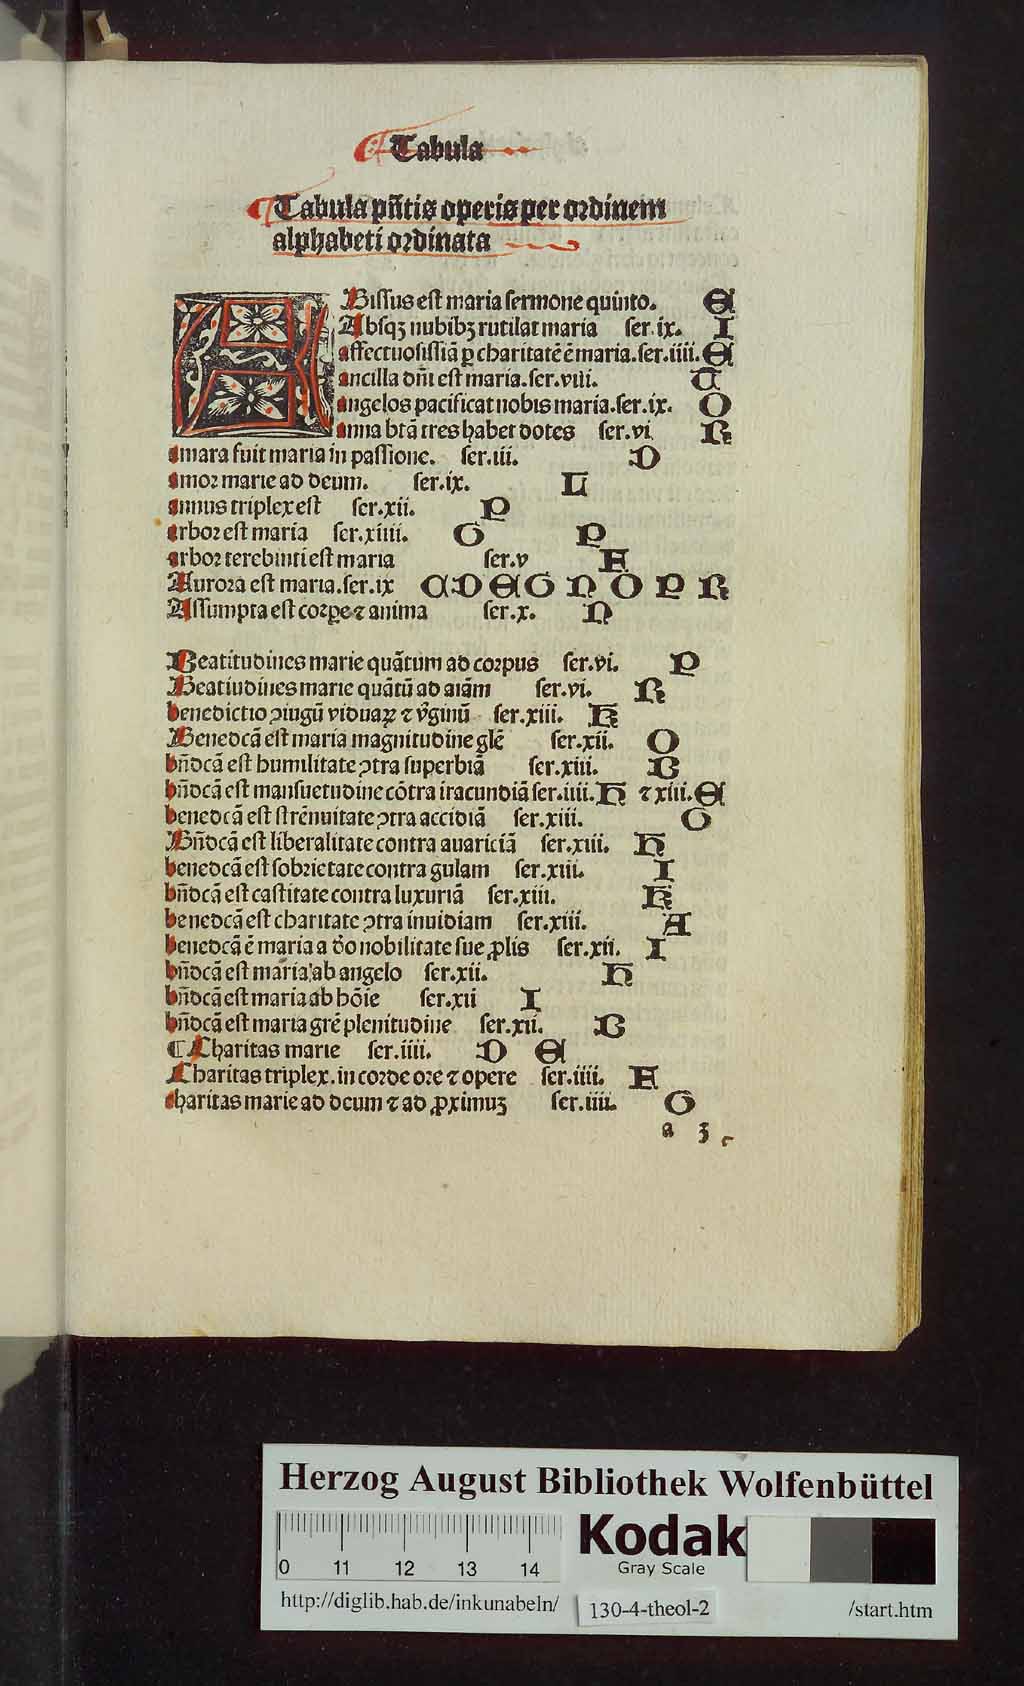 Tabula
Tabula pn̄tis operis per ordinem
alphabeti ordinata
ABissus est maria sermone quinto. E
Absqꝫ nubibꝫ rutilat maria ser.ix. I
affectuosissiā ꝑ charitatē ē maria.ser.iiii. E
ancilla dn̄i est maria.ser.viii. C
angelos pacificat nobis maria.ser.ix. O
anna btā tres habet dotes ser.vi R
amara fuit maria in passione. ser.iii. D
amor marie ad deum. ser.ix. L
annus triplex est ser.xii. P
arbor est maria ser.xiiii. G P
arbor terebinti est maria ser.v F
Aurora est maria.ser.ix C D E G N O P R
Assumpta est corꝑe ⁊ anima ser.x. N
Beatitudines marie quātum ad corpus ser.vi. P
Beatiudines marie quātū ad aiām ser.vi. R
benedictio ꝯiugū viduaꝝ ⁊ v̓ginū ser.xiii. K
Benedcā est maria magnitudine glē ser.xii. O
bn̄dcā est humilitate ꝯtra superbiā ser.xiii. B
bn̄dcā est mansuetudine cōtra iracundiā ser.iiii. H ⁊ xiii. E
benedcā est strēnuitate ꝯtra accidiā ser.xiii. G
Bn̄dcā est liberalitate contra auariciā ser.xiii. H
benedcā est sobrietate contra gulam ser.xiii. I
bn̄dcā est castitate contra luxuriā ser.xiii. K
benedcā est charitate ꝯtra inuidiam ser.xiii. A
benedcā ē maria a do nobilitate sue ꝓlis ser.xii. I
bn̄dcā est maria ab angelo ser.xii. H
bn̄dcā est maria ab hōie ser.xii I
bn̄dcā est maria grē plenitudine ser.xii. B
¶ Charitas marie ser.iiii. D E
Charitas triplex. in corde ore ⁊ opere ser.iiii. F
charitas marie ad deum ⁊ ad ꝓximuꝫ ser.iiii. G
a 3
Herzog August Bibliothek Wolfenbüttel
0 11 12 13 14
Kodak
Gray Scale
http://diglib.hab.de/inkunabeln/ 130-4-theol-2 /start.htm